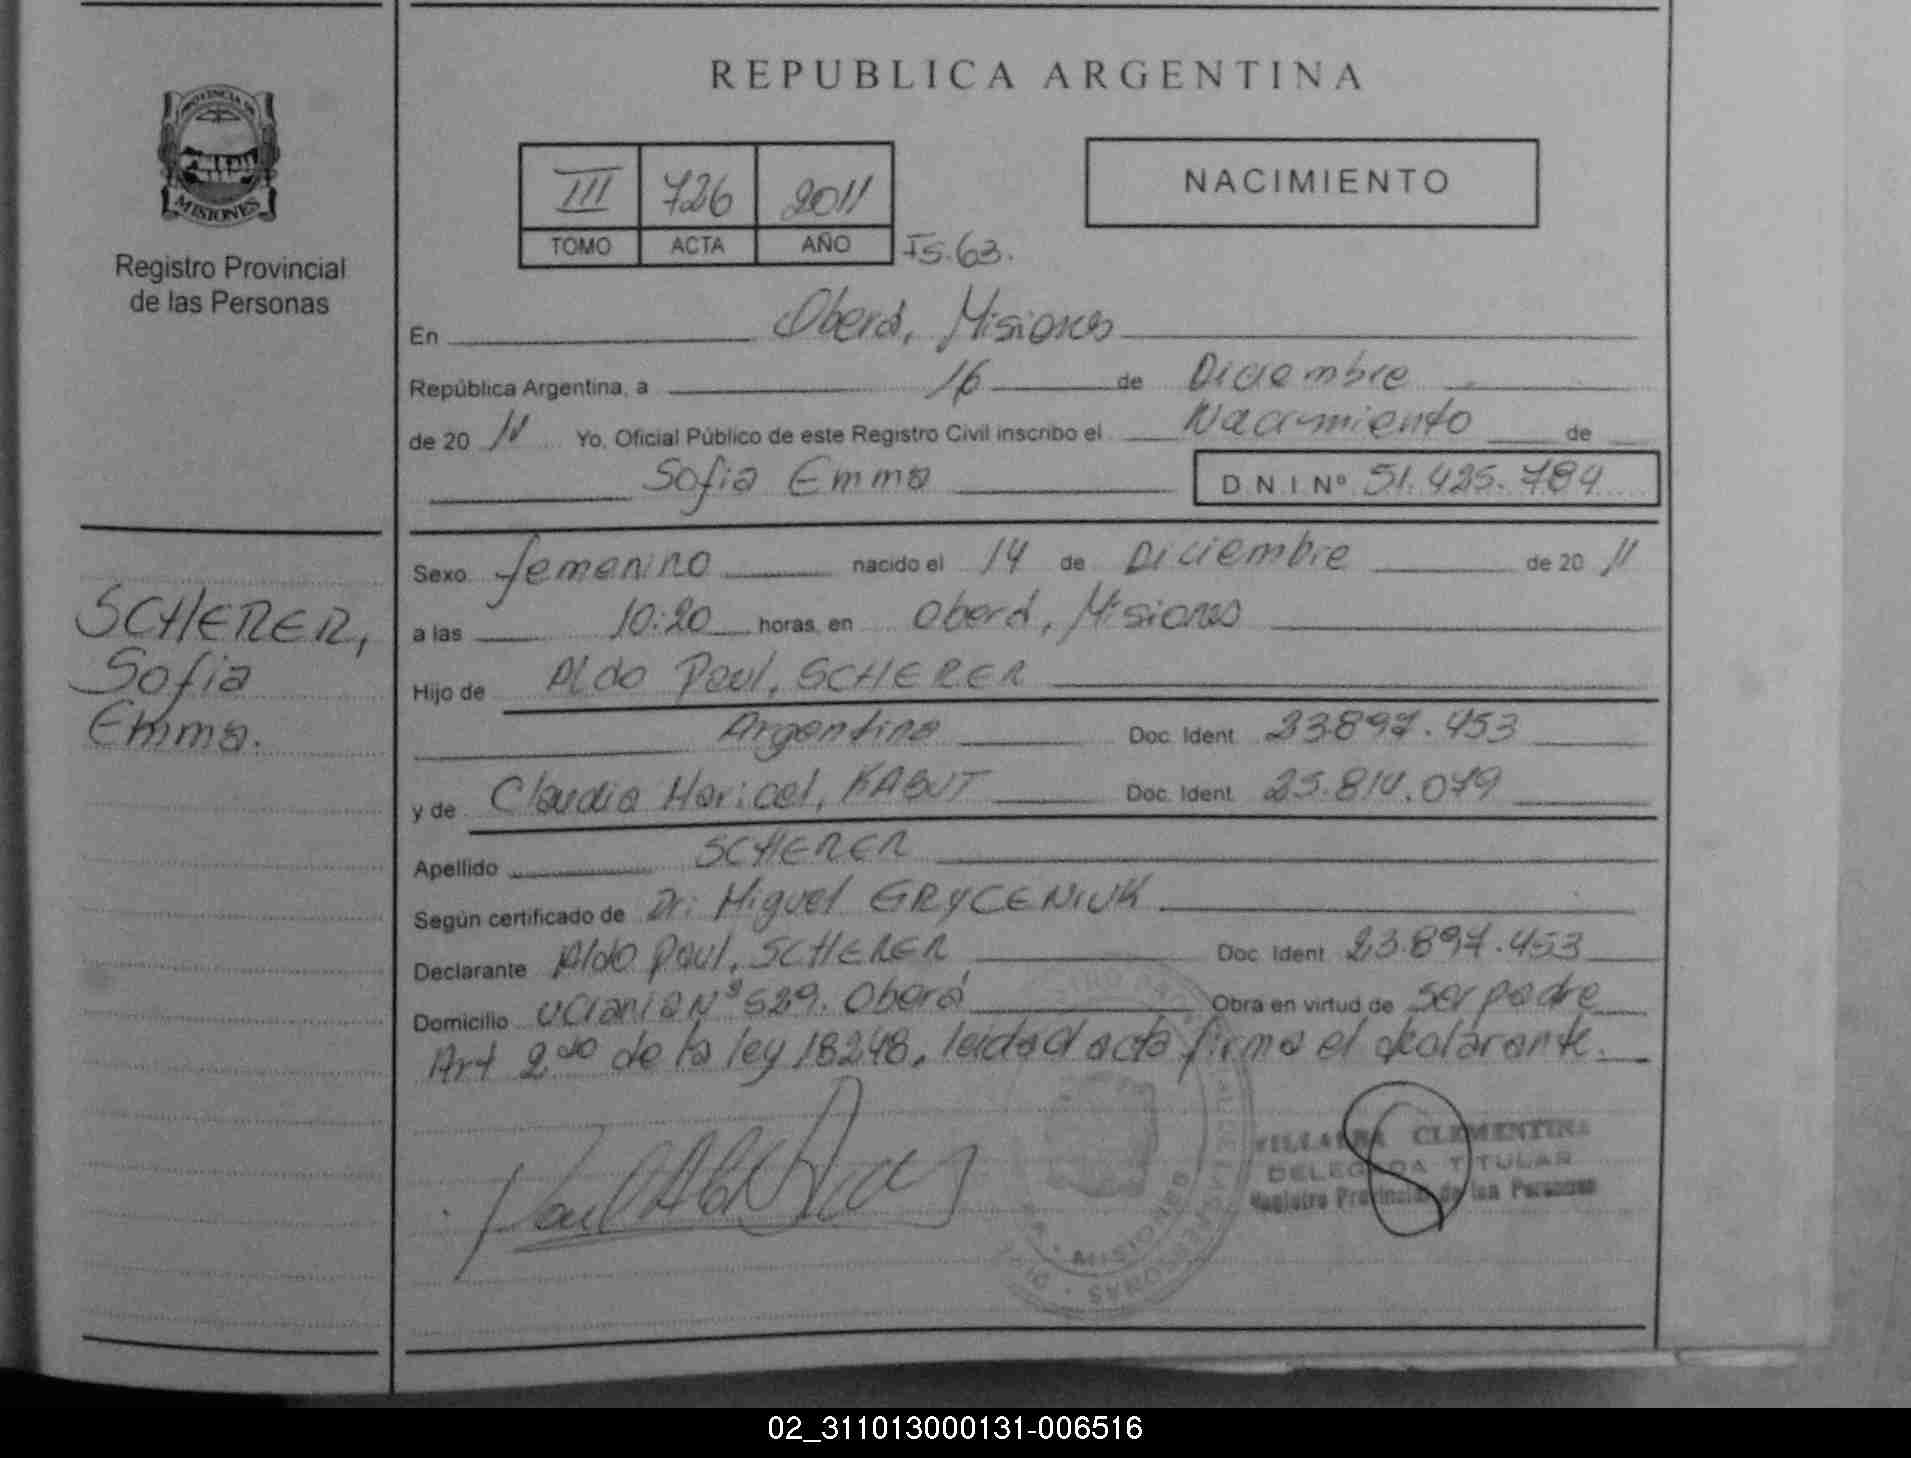 REPUBLICA ARGENTINA
PROVINCIA DE
MISIONES
Registro Provincial
de las Personas
III 726 2011
TOMO ACTA AÑO Fs. 63.
NACIMIENTO
En Oberá, Misiones
República Argentina, a 16 de Diciembre
de 20 11 Yo, Oficial Público de este Registro Civil inscribo el Nacimiento de
Sofia Emma D N I Nº 51.425.784
SCHERER,
Sofia
Emma.
Sexo femenino nacido el 14 de Diciembre de 20 11
a las 10:20 horas, en Oberá, Misiones
Hijo de Aldo Paul, SCHERER
Argentino Doc. Ident. 23.897.453
y de Claudia Maricel, KABUT Doc. Ident. 25.814.079
Apellido SCHERER
Según certificado de Dr: Miguel GRYCENIUK
Declarante Aldo Paul, SCHERER Doc. Ident 23.897.453
Domicilio Ucrania Nº 529. Oberá Obra en virtud de ser padre
Art 2do de la ley 18248, leida el acta firma el declarante.
VILLALBA CLEMENTINA
DELEGADA TITULAR
Registro Provincial de las Personas
MISIONES
02_311013000131-006516